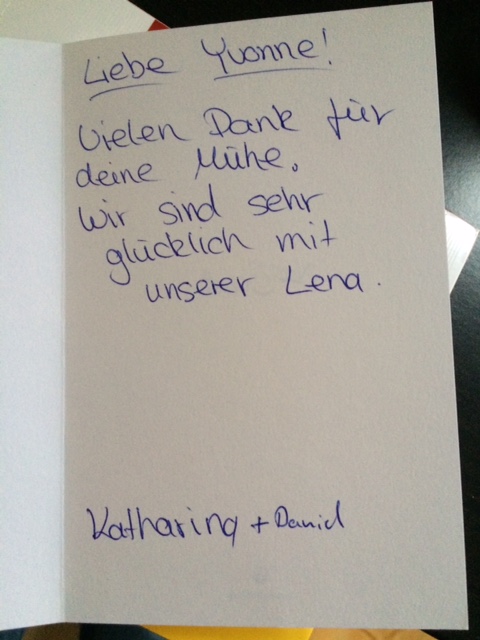 Liebe Yvonne!
Vielen Dank für
deine Mühe.
Wir sind sehr
glücklich mit
unserer Lena.
Katharina + Daniel